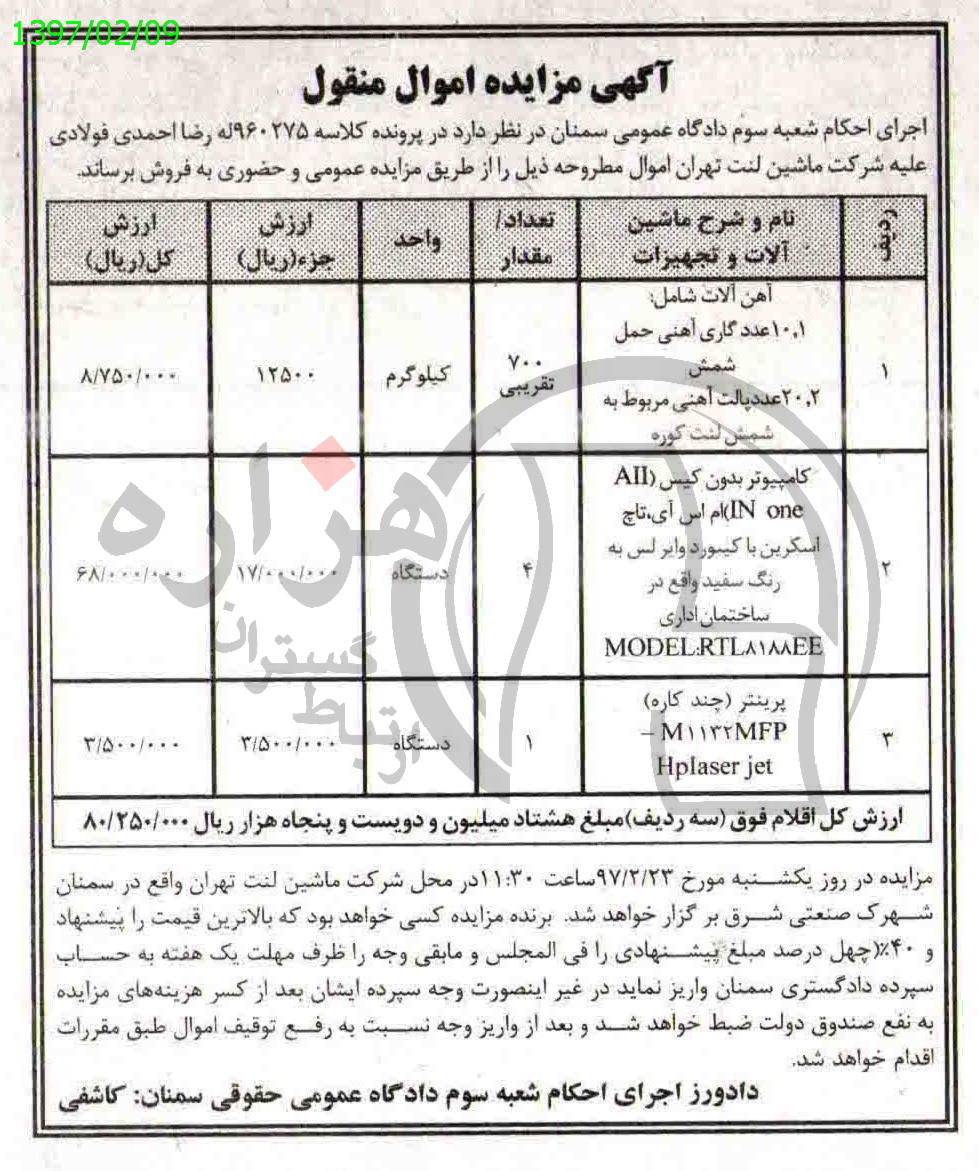 1397/02/09
آگهی مزایده اموال منقول
اجرای احکام شعبه سوم دادگاه عمومی سمنان در نظر دارد در پرونده کلاسه ۹۶۰۲۷۵له رضا احمدی فولادی
علیه شرکت ماشین لنت تهران اموال مطروحه ذیل را از طریق مزایده عمومی و حضوری به فروش برساند.
ردیف | نام و شرح ماشین آلات و تجهیزات | تعداد/ مقدار | واحد | ارزش جزء(ریال) | ارزش کل(ریال)
آهن آلات شامل:
۱۰,۱عدد گاری آهنی حمل
شمش
۲۰,۲عددپالت آهنی مربوط به
شمش لنت کوره
۱ | ۷۰۰ تقریبی | کیلوگرم | ۱۲۵۰۰ | ۸/۷۵۰/۰۰۰
کامپیوتر بدون کیس (AII
IN one)ام اس آی،تاچ
اسکرین با کیبورد وایر لس به
رنگ سفید واقع در
ساختمان اداری
MODEL:RTL۸۱۸۸EE
۲ | ۴ | دستگاه | ۱۷/۰۰۰/۰۰۰ | ۶۸/۰۰۰/۰۰۰
پرینتر (چند کاره)
M۱۱۳۲MFP –
Hplaser jet
۳ | ۱ | دستگاه | ۳/۵۰۰/۰۰۰ | ۳/۵۰۰/۰۰۰
ارزش کل اقلام فوق (سه ردیف)مبلغ هشتاد میلیون و دویست و پنجاه هزار ریال ۸۰/۲۵۰/۰۰۰
مزایده در روز یکشنبه مورخ ۹۷/۲/۲۳ساعت ۱۱:۳۰در محل شرکت ماشین لنت تهران واقع در سمنان
شهرک صنعتی شرق بر گزار خواهد شد. برنده مزایده کسی خواهد بود که بالاترین قیمت را پیشنهاد
و ۴۰٪(چهل درصد مبلغ پیشنهادی را فی المجلس و مابقی وجه را ظرف مهلت یک هفته به حساب
سپرده دادگستری سمنان واریز نماید در غیر اینصورت وجه سپرده ایشان بعد از کسر هزینه‌های مزایده
به نفع صندوق دولت ضبط خواهد شد و بعد از واریز وجه نسبت به رفع توقیف اموال طبق مقررات
اقدام خواهد شد.
دادورز اجرای احکام شعبه سوم دادگاه عمومی حقوقی سمنان: کاشفی
هزاره
گستران
ارتباط